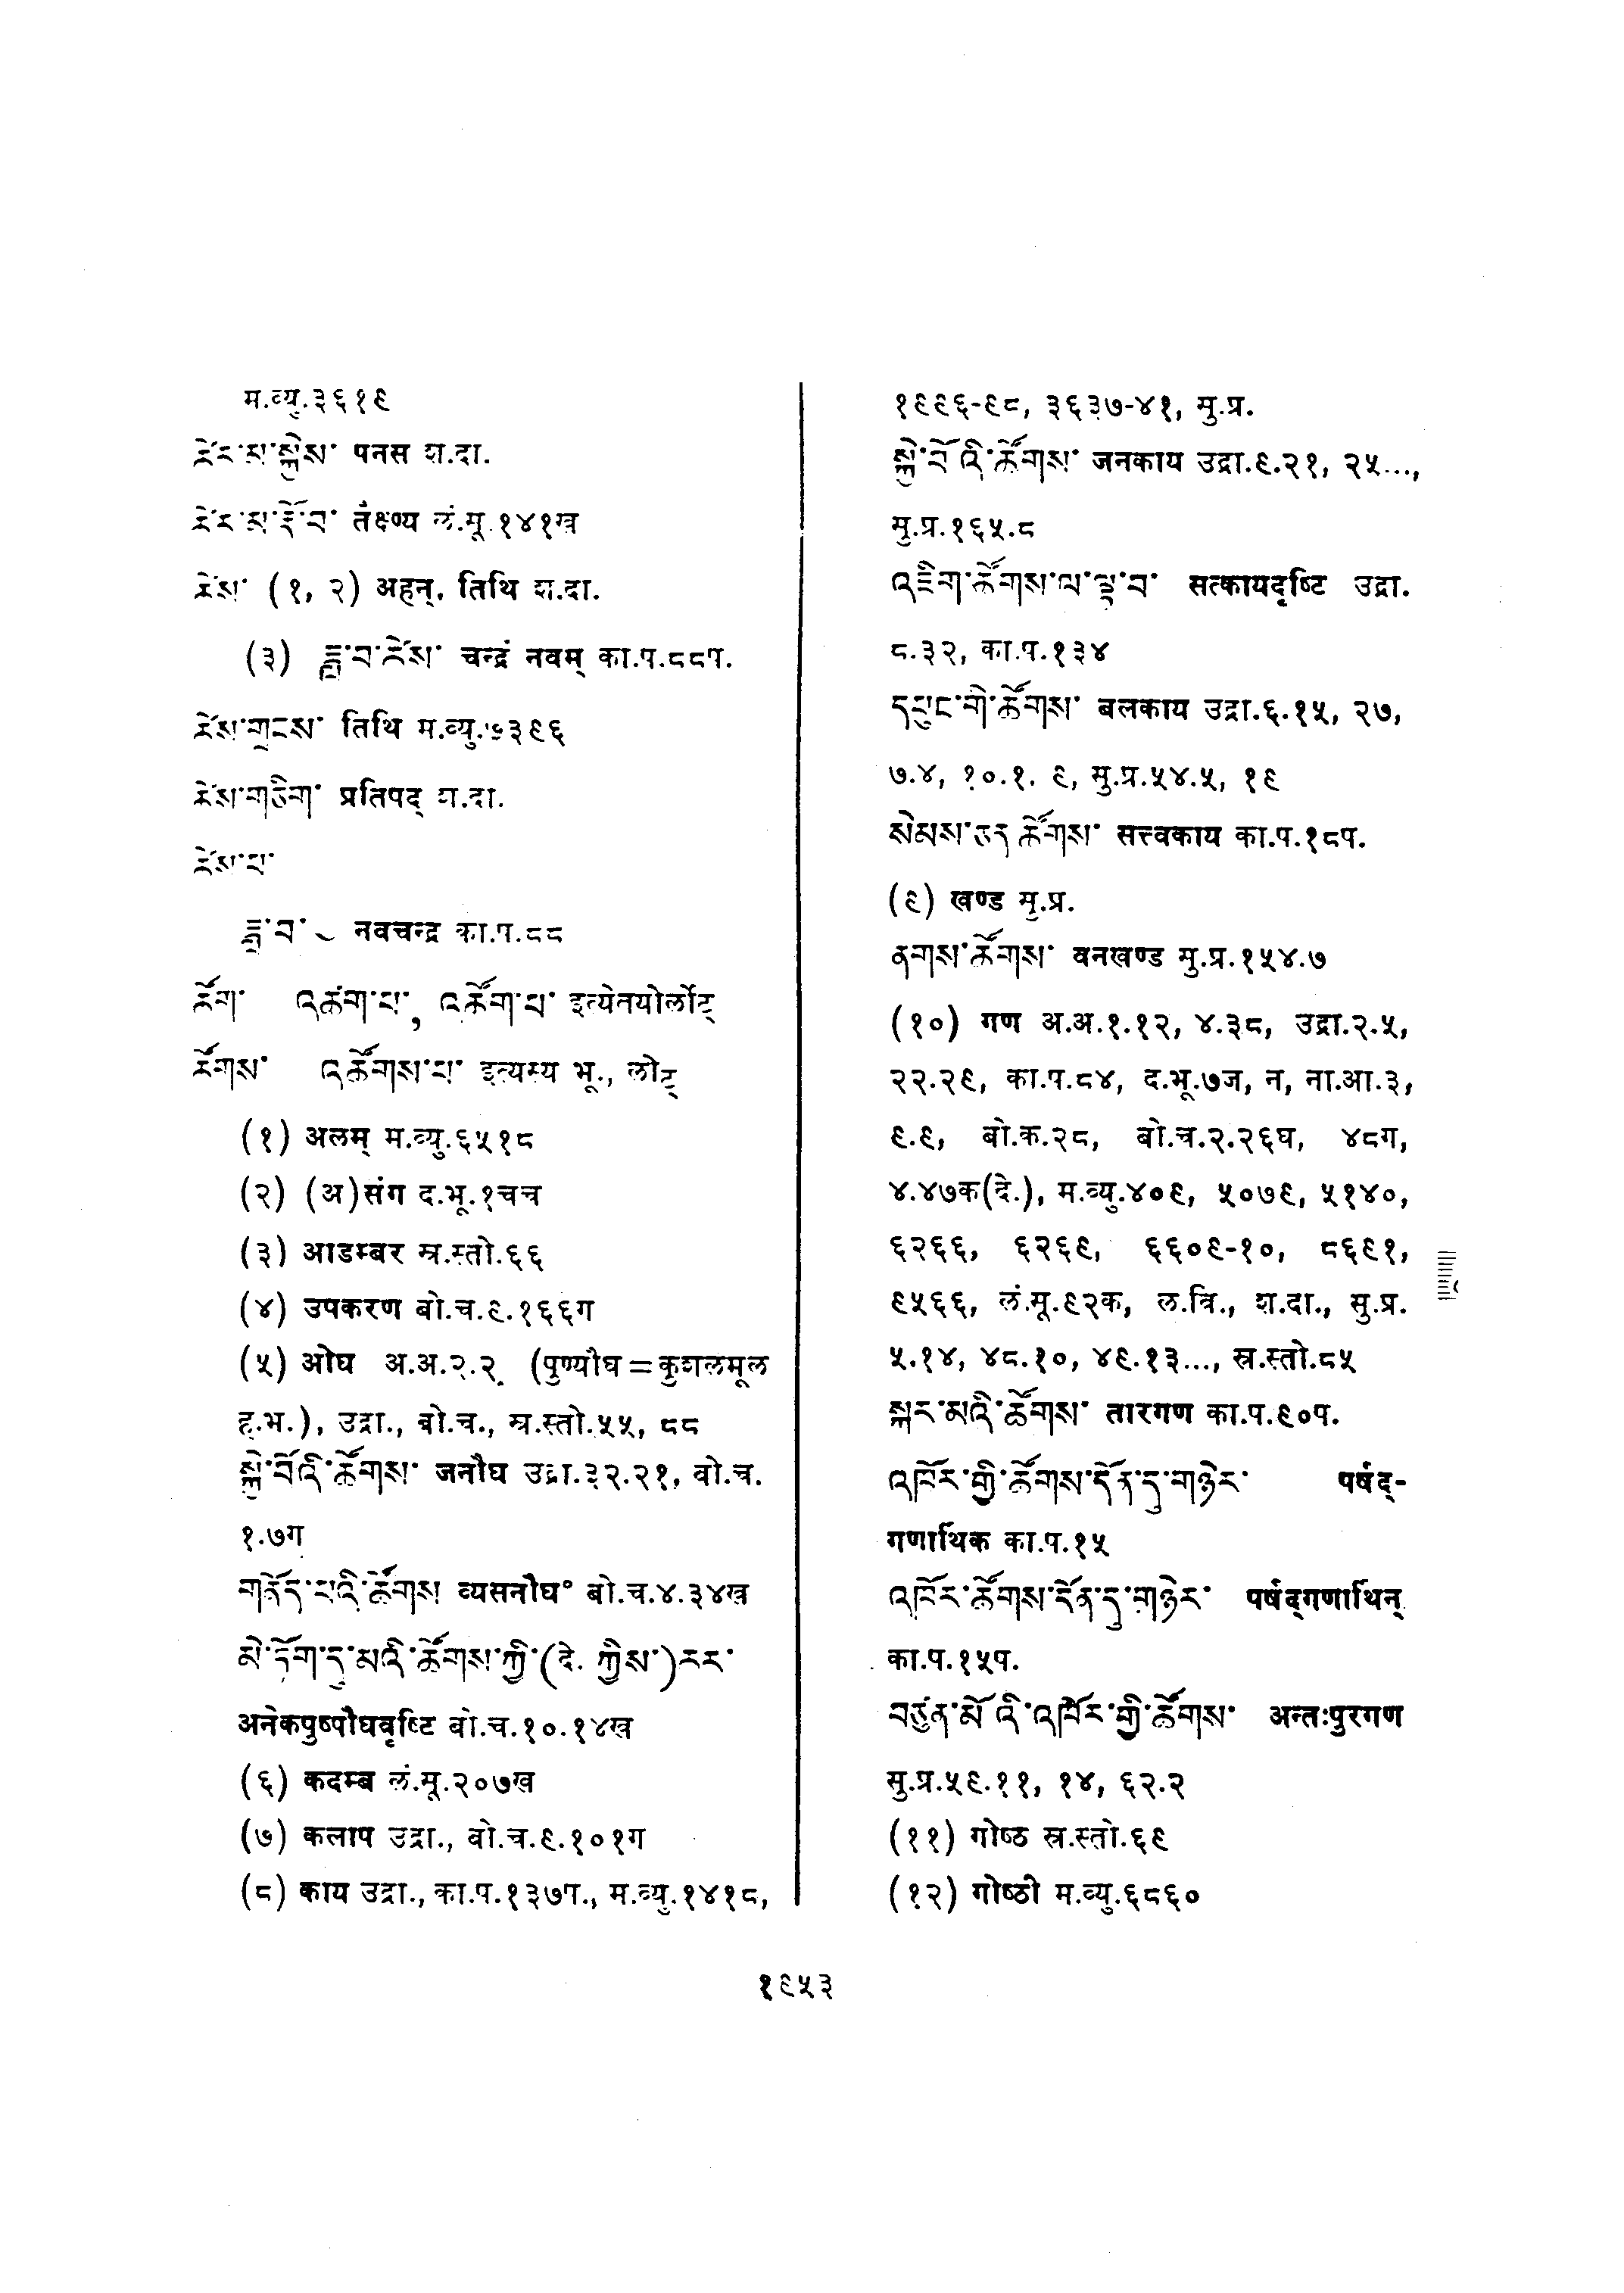 म.व्यु.३६१९
ཚེར་མ་སྐྱེས་ पनस श.दा.
ཚེར་མ་རྡོ་བ་ तैक्ष्ण्य लं.मू.१४१ख
ཚེས་ (१, २) अहन्, तिथि श.दा.
(३) ཟླ་བ་ཚེས་ चन्द्रं नवम् का.प.८८प.
ཚེས་གྲངས་ तिथि म.व्यु.७३९६
ཚེས་གཅིག་ प्रतिपद् श.दा.
ཚེས་པ་
ཟླ་བ་ ~ नवचन्द्र का.प.८८
ཚོག་ འཚག་པ་, འཚོག་པ་ इत्येतयोर्लोट्
ཚོགས་ འཚོགས་པ་ इत्यस्य भू., लोट्
(१) अलम् म.व्यु.६५१८
(२) (अ)संग द.भू.१चच
(३) आडम्बर स्र.स्तो.६६
(४) उपकरण बो.च.९.१६६ग
(५) ओघ अ.अ.२.२ (पुण्यौघ=कुशलमूल
ह.भ.), उद्रा., बो.च., स्र.स्तो.५५, ८८
སྐྱེ་བོའི་ཚོགས་ जनौघ उद्रा.३२.२१, बो.च.
१.७ग
གནོད་པའི་ཚོགས། व्यसनौघ° बो.च.४.३४ख
མེ་ཏོག་དུ་མའི་ཚོགས་ཀྱི་(दे. ཀྱིས་)ཆར་
अनेकपुष्पौघवृष्टि बो.च.१०.१४ख
(६) कदम्ब लं.मू.२०७ख
(७) कलाप उद्रा., बो.च.९.१०१ग
(८) काय उद्रा., का.प.१३७प., म.व्यु.१४१८,
१९९६-९८, ३६३७-४१, सु.प्र.
སྐྱེ་བོའི་ཚོགས་ जनकाय उद्रा.९.२१, २५...,
सु.प्र.१६५.८
འཇིག་ཚོགས་ལ་ལྟ་བ་ सत्कायदृष्टि उद्रा.
८.३२, का.प.१३४
དཔུང་གི་ཚོགས་ बलकाय उद्रा.६.१५, २७,
७.४, १०.१, ९, सु.प्र.५४.५, १९
སེམས་ཅན་ཚོགས་ सत्त्वकाय का.प.१८प.
(९) खण्ड सु.प्र.
ནགས་ཚོགས་ वनखण्ड सु.प्र.१५४.७
(१०) गण अ.अ.१.१२, ४.३८, उद्रा.२.५,
२२.२९, का.प.८४, द.भू.७ज, न, ना.आ.३,
९.९, बो.क.२८, बो.च.२.२६घ, ४८ग,
४.४७क(दे.), म.व्यु.४०९, ५०७९, ५१४०,
६२६६, ६२६९, ६६०९-१०, ८६९१,
९५६६, लं.मू.९२क, ल.त्रि., श.दा., सु.प्र.
५.१४, ४८.१०, ४९.१३..., स्र.स्तो.८५
སྐར་མའི་ཚོགས་ तारगण का.प.९०प.
འཁོར་གྱི་ཚོགས་དོན་དུ་གཉེར་ पर्षद्-
गणार्थिक का.प.१५
འཁོར་ཚོགས་དོན་དུ་གཉེར་ पर्षद्गणार्थिन्
का.प.१५प.
བཙུན་མོའི་འཁོར་གྱི་ཚོགས་ अन्तःपुरगण
सु.प्र.५९.११, १४, ६२.२
(११) गोष्ठ स्र.स्तो.६९
(१२) गोष्ठी म.व्यु.६८६०
१९५३